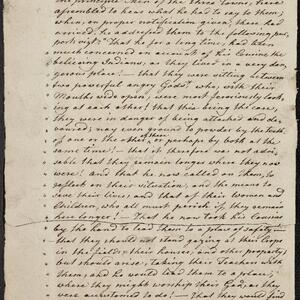 the principal Men of the three Towns, being
assembled to hear what he had to say to them
when, on proper notification given; there had
arrived. he addressed them to the following pur,
port viz.t That he for a long time, had taken
much concern on account of his Cousins the
believing Indians, as they lived in a very dan,
gerous place! — that they were sitting between
two powerful angry Gods, who, with their
Mouths wide open, were most ferociously look,
ing at each other! that this being the case,
they were in danger of being attacked and de
voured; nay even ground to powder by the teeth
of one or the other, or perhaps by both at the
same time! — that it therefore was not advi,
sable that they remain longer where they now
were! And that he now called on them, to
reflect on their situation, and the means to
save their lives; and that of their Women and
Children, who all must perish, if they remain
here longer! — That he now took his Cousins
by the hand to lead them to a place of safety —
that they should not stand gazing at their Crops
in the fields, their houses, and other property,
but should arise; taking their Teachers with
them; and he would lead them to a place,
where they might worship their God, as they
were accustomed to do! — that they would find